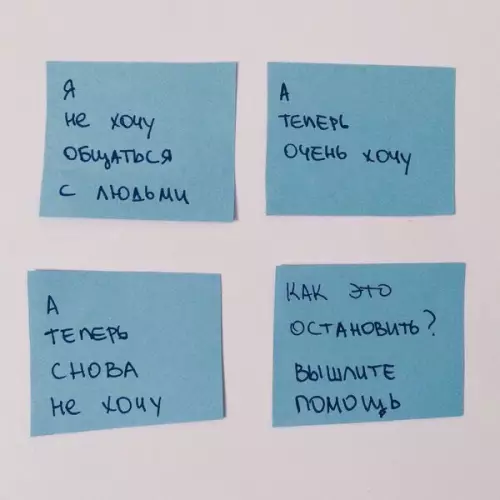 Я
не хочу
общаться
с людьми
А
теперь
очень хочу
А
теперь
снова
не хочу
Как это
остановить?
Вышлите
помощь